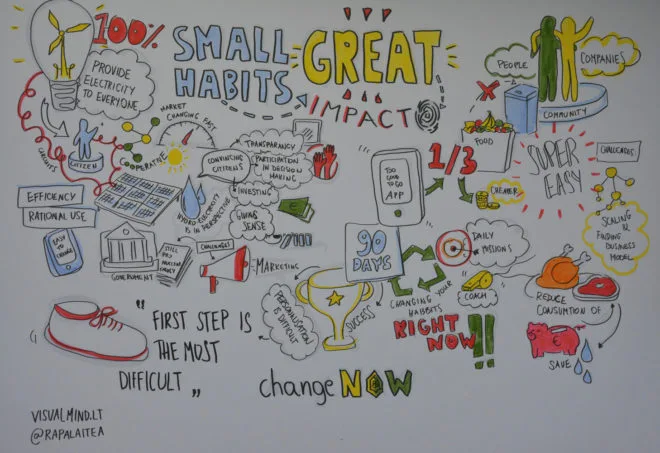 100%
SMALL
HABITS
GREAT
IMPACT
PROVIDE
ELECTRICITY
TO EVERYONE
MARKET
CHANGING FAST
CITIZEN
COOPERATIVE
EFFICIENCY
RATIONAL USE
EASY TO
CHANGE
GOVERNEMENT
STILL
PRO
NUCLEAR
ENERGY
HYDRO ELECTRICITY
IS IN PERSPECTIVE
TRANSPARANCY
CONVINCING
CITIZENS
PARTICIPATION
IN DECISION
MAKING
INVESTING
GIVING
SENSE
CHALLENGES
MARKETING
PEOPLE
COMPANIES
COMMUNITY
FOOD
1/3
TOO
GOOD TO
GO
APP
CHEAPER
SUPER
EASY
CHALLENGES
SCALING &
FINDING
BUSINESS
MODEL
90
DAYS
DAILY
MISSIONS
COACH
CHANGING YOUR
HABBITS
RIGHT
NOW !!
PERSONALISATION
IS DIFFICULT
SUCCESS
REDUCE
CONSUMTION OF
€
SAVE
"FIRST STEP IS
THE MOST
DIFFICULT"
changeNOW
VISUALMIND.LT
@RAPALAITEA